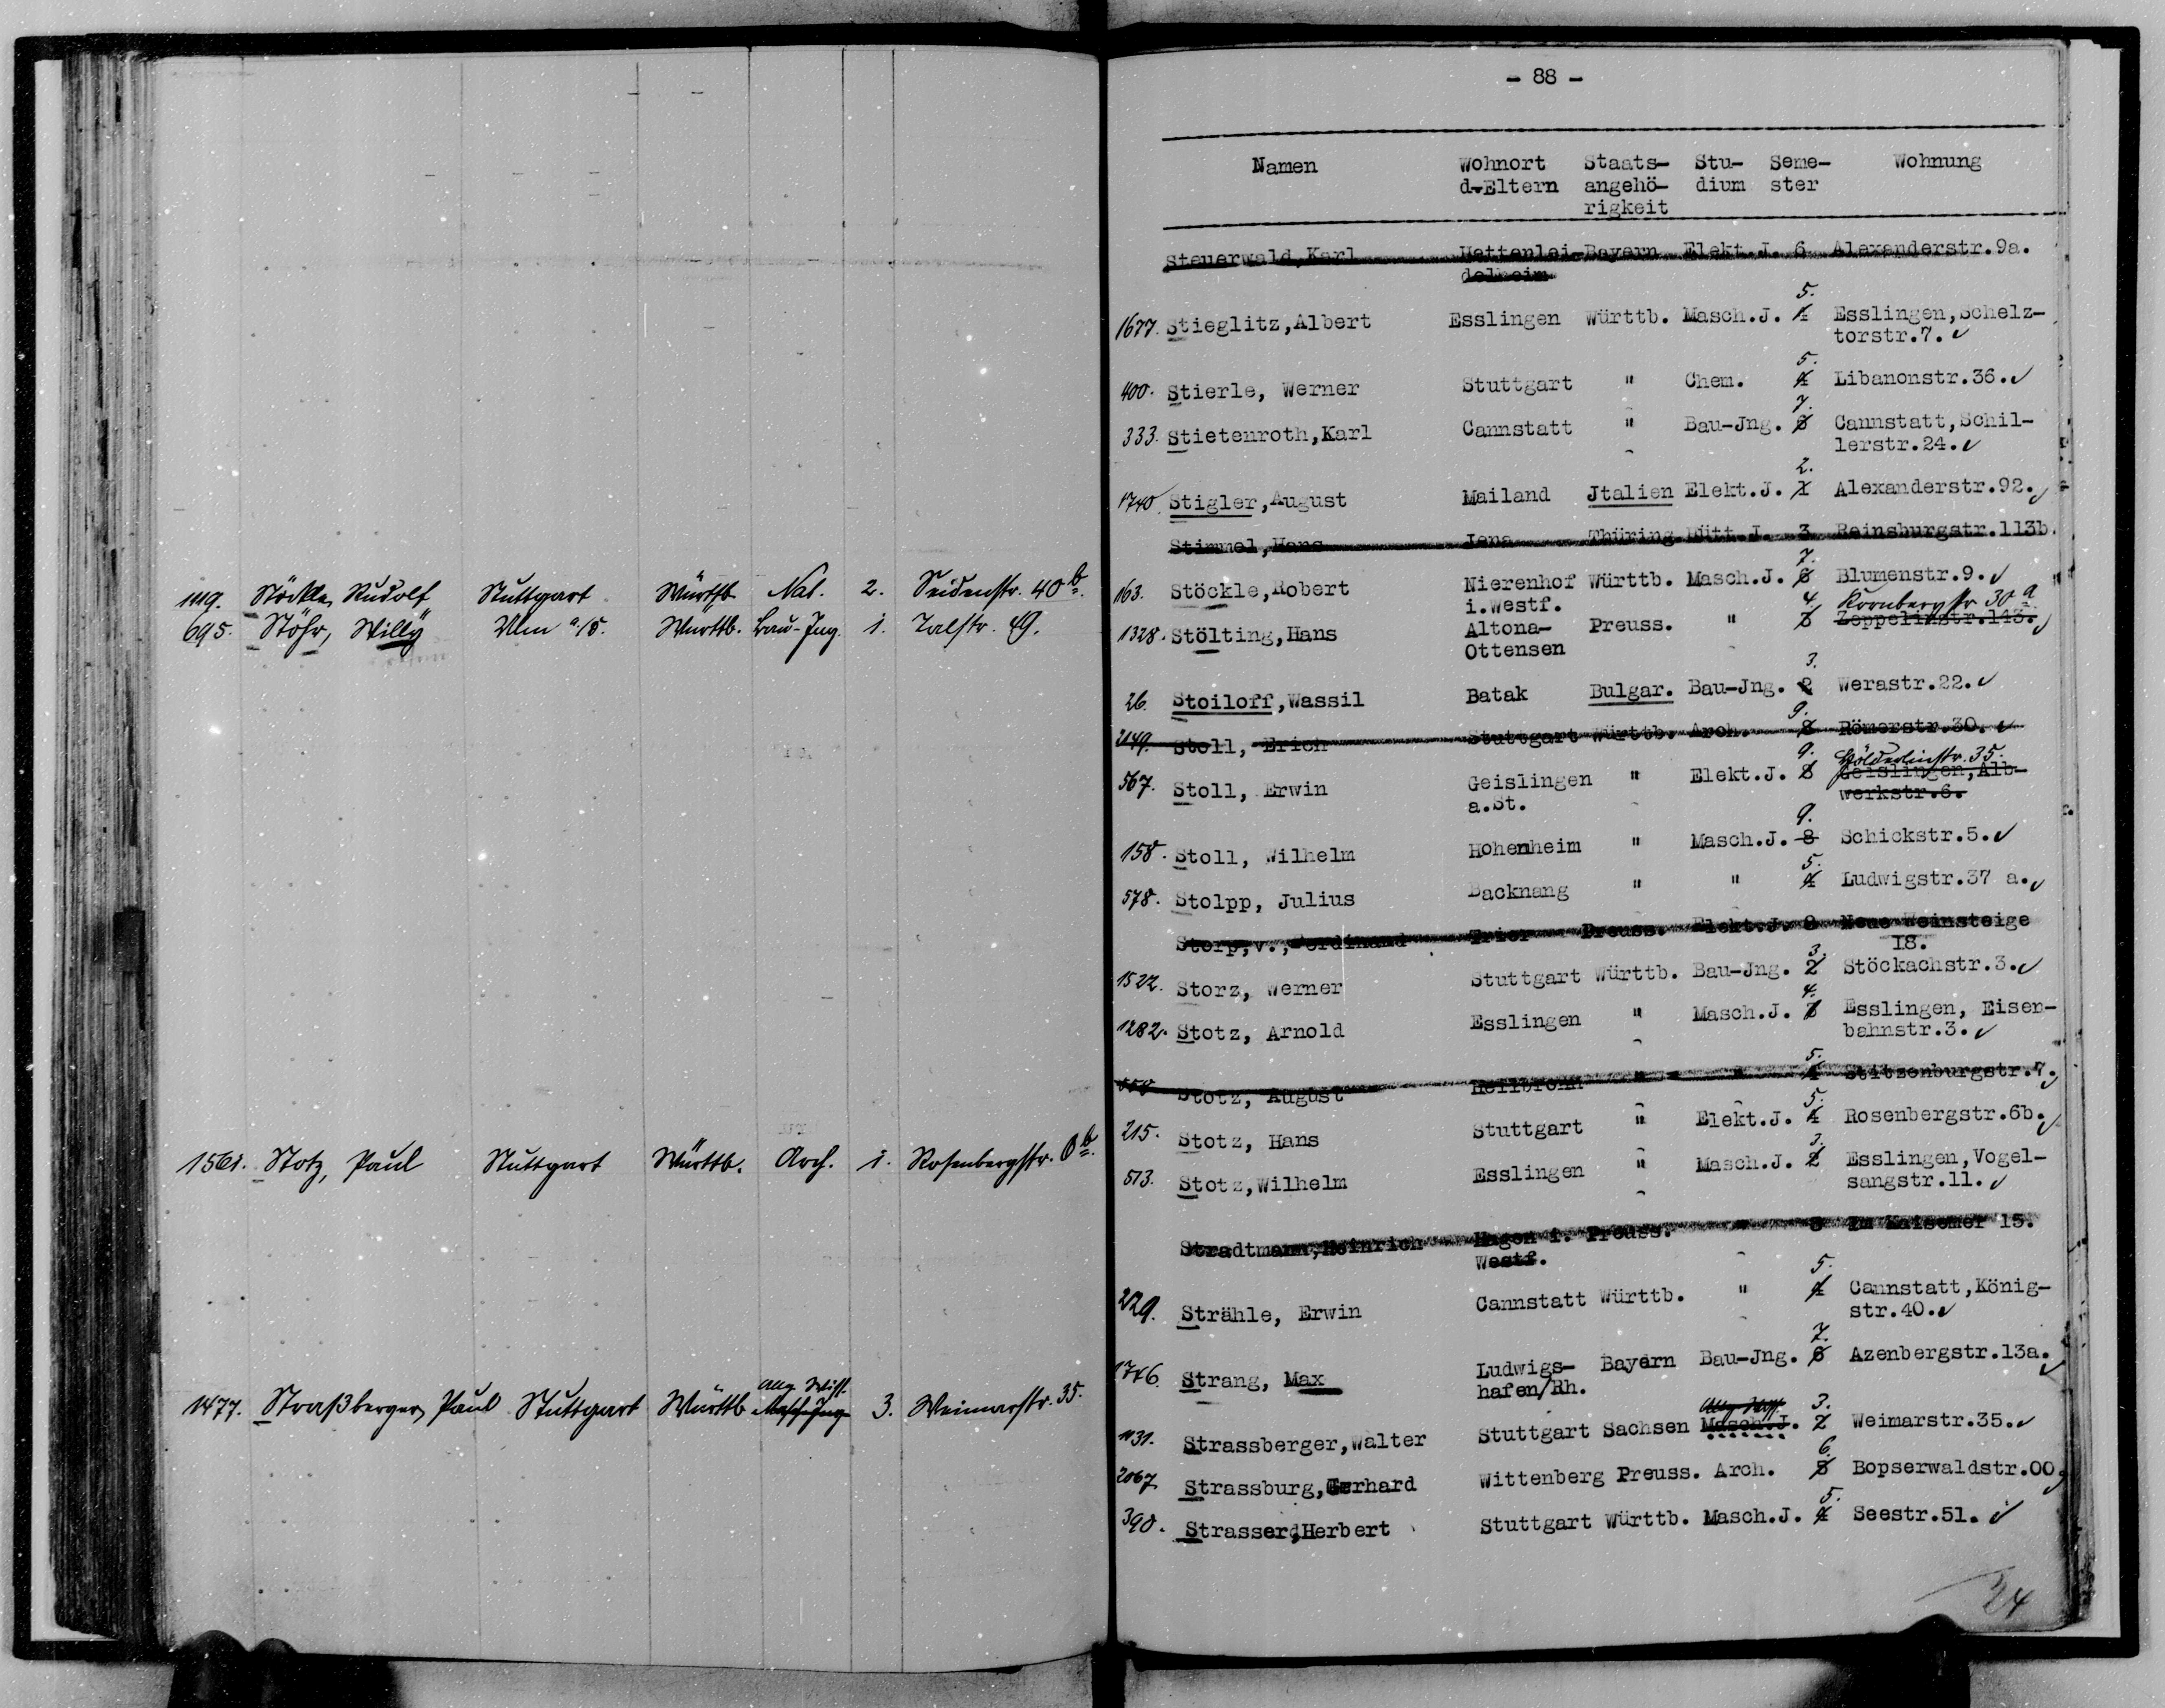 1119. Stöckle, Rudolf Stuttgart Württb. Nat. 2. Seidenstr. 40b.
695. Stöhr, Willy Ulm a/D. Württb. Bau-Ing. 1. Talstr. 49.
1561. Stotz, Paul Stuttgart Württb. Arch. 1. Rosenbergstr. 6b.
Allg. Wiss.
1477. Straßberger, Paul Stuttgart Württb. Masch. Ing. 3. Weimarstr. 35.
- 88 -
Namen Wohnort Staats- Stu- Seme- Wohnung
d.Eltern angehö- dium ster
rigkeit
Steuerwald,Karl Hettenlei- Bayern Elekt.J. 6 Alexanderstr.9a.
delheim
5.
1677. Stieglitz,Albert Esslingen Württb. Masch.J. 4 Esslingen,Schelz-
torstr.7.
5.
400. Stierle, Werner Stuttgart " Chem. 4 Libanonstr.36.
7.
333. Stietenroth,Karl Cannstatt " Bau-Jng. 6 Cannstatt,Schil-
lerstr.24.
2.
1740. Stigler,August Mailand Jtalien Elekt.J. 1 Alexanderstr.92.
Stimmel,Hans Jena Thüring Hütt.J. 3 Reinsburgstr.113b.
7.
163. Stöckle,Robert Nierenhof Württb. Masch.J. 6 Blumenstr.9.
i.Westf. 4. Kornbergstr 30a
1328. Stölting,Hans Altona- Preuss. " 3 Zeppelinstr.143.
Ottensen
3.
26. Stoiloff,Wassil Batak Bulgar. Bau-Jng. 2 Werastr.22.
9.
2149. Stoll, Erich Stuttgart Württb. Arch. 8 Römerstr.30.
9. Hölderlinstr. 35.
567. Stoll, Erwin Geislingen " Elekt.J. 8 Geislingen,Alb-
a.St. werkstr.6.
9.
158. Stoll, Wilhelm Hohenheim " Masch.J. 8 Schickstr.5.
5.
578. Stolpp, Julius Backnang " " 4 Ludwigstr.37 a.
Storp,v.,Ferdinand Trier Preuss. Elekt.J. 8 Neue Weinsteige
18.
3.
1522. Storz, Werner Stuttgart Württb. Bau-Jng. 2 Stöckachstr.3.
4.
1282. Stotz, Arnold Esslingen " Masch.J. 3 Esslingen, Eisen-
bahnstr.3.
5.
Stotz, August Heilbronn " " 4 Stitzenburgstr.7.
5.
215. Stotz, Hans Stuttgart " Elekt.J. 4 Rosenbergstr.6b.
3.
513. Stotz,Wilhelm Esslingen " Masch.J. 2 Esslingen,Vogel-
sangstr.11.
Stradtmann,Heinrich Hagen i. Preuss. " 8 Im Kaisemer 15.
Westf.
5.
229. Strähle, Erwin Cannstatt Württb. " 4 Cannstatt,König-
str.40.
7.
1746. Strang, Max Ludwigs- Bayern Bau-Jng. 6 Azenbergstr.13a.
hafen/Rh.
3.
1131. Strassberger,Walter Stuttgart Sachsen Masch.J. 2 Weimarstr.35.
6.
2067. Strassburg,Gerhard Wittenberg Preuss. Arch. 5 Bopserwaldstr.00
5.
390. Strasser,Herbert Stuttgart Württb. Masch.J. 4 Seestr.51.
24